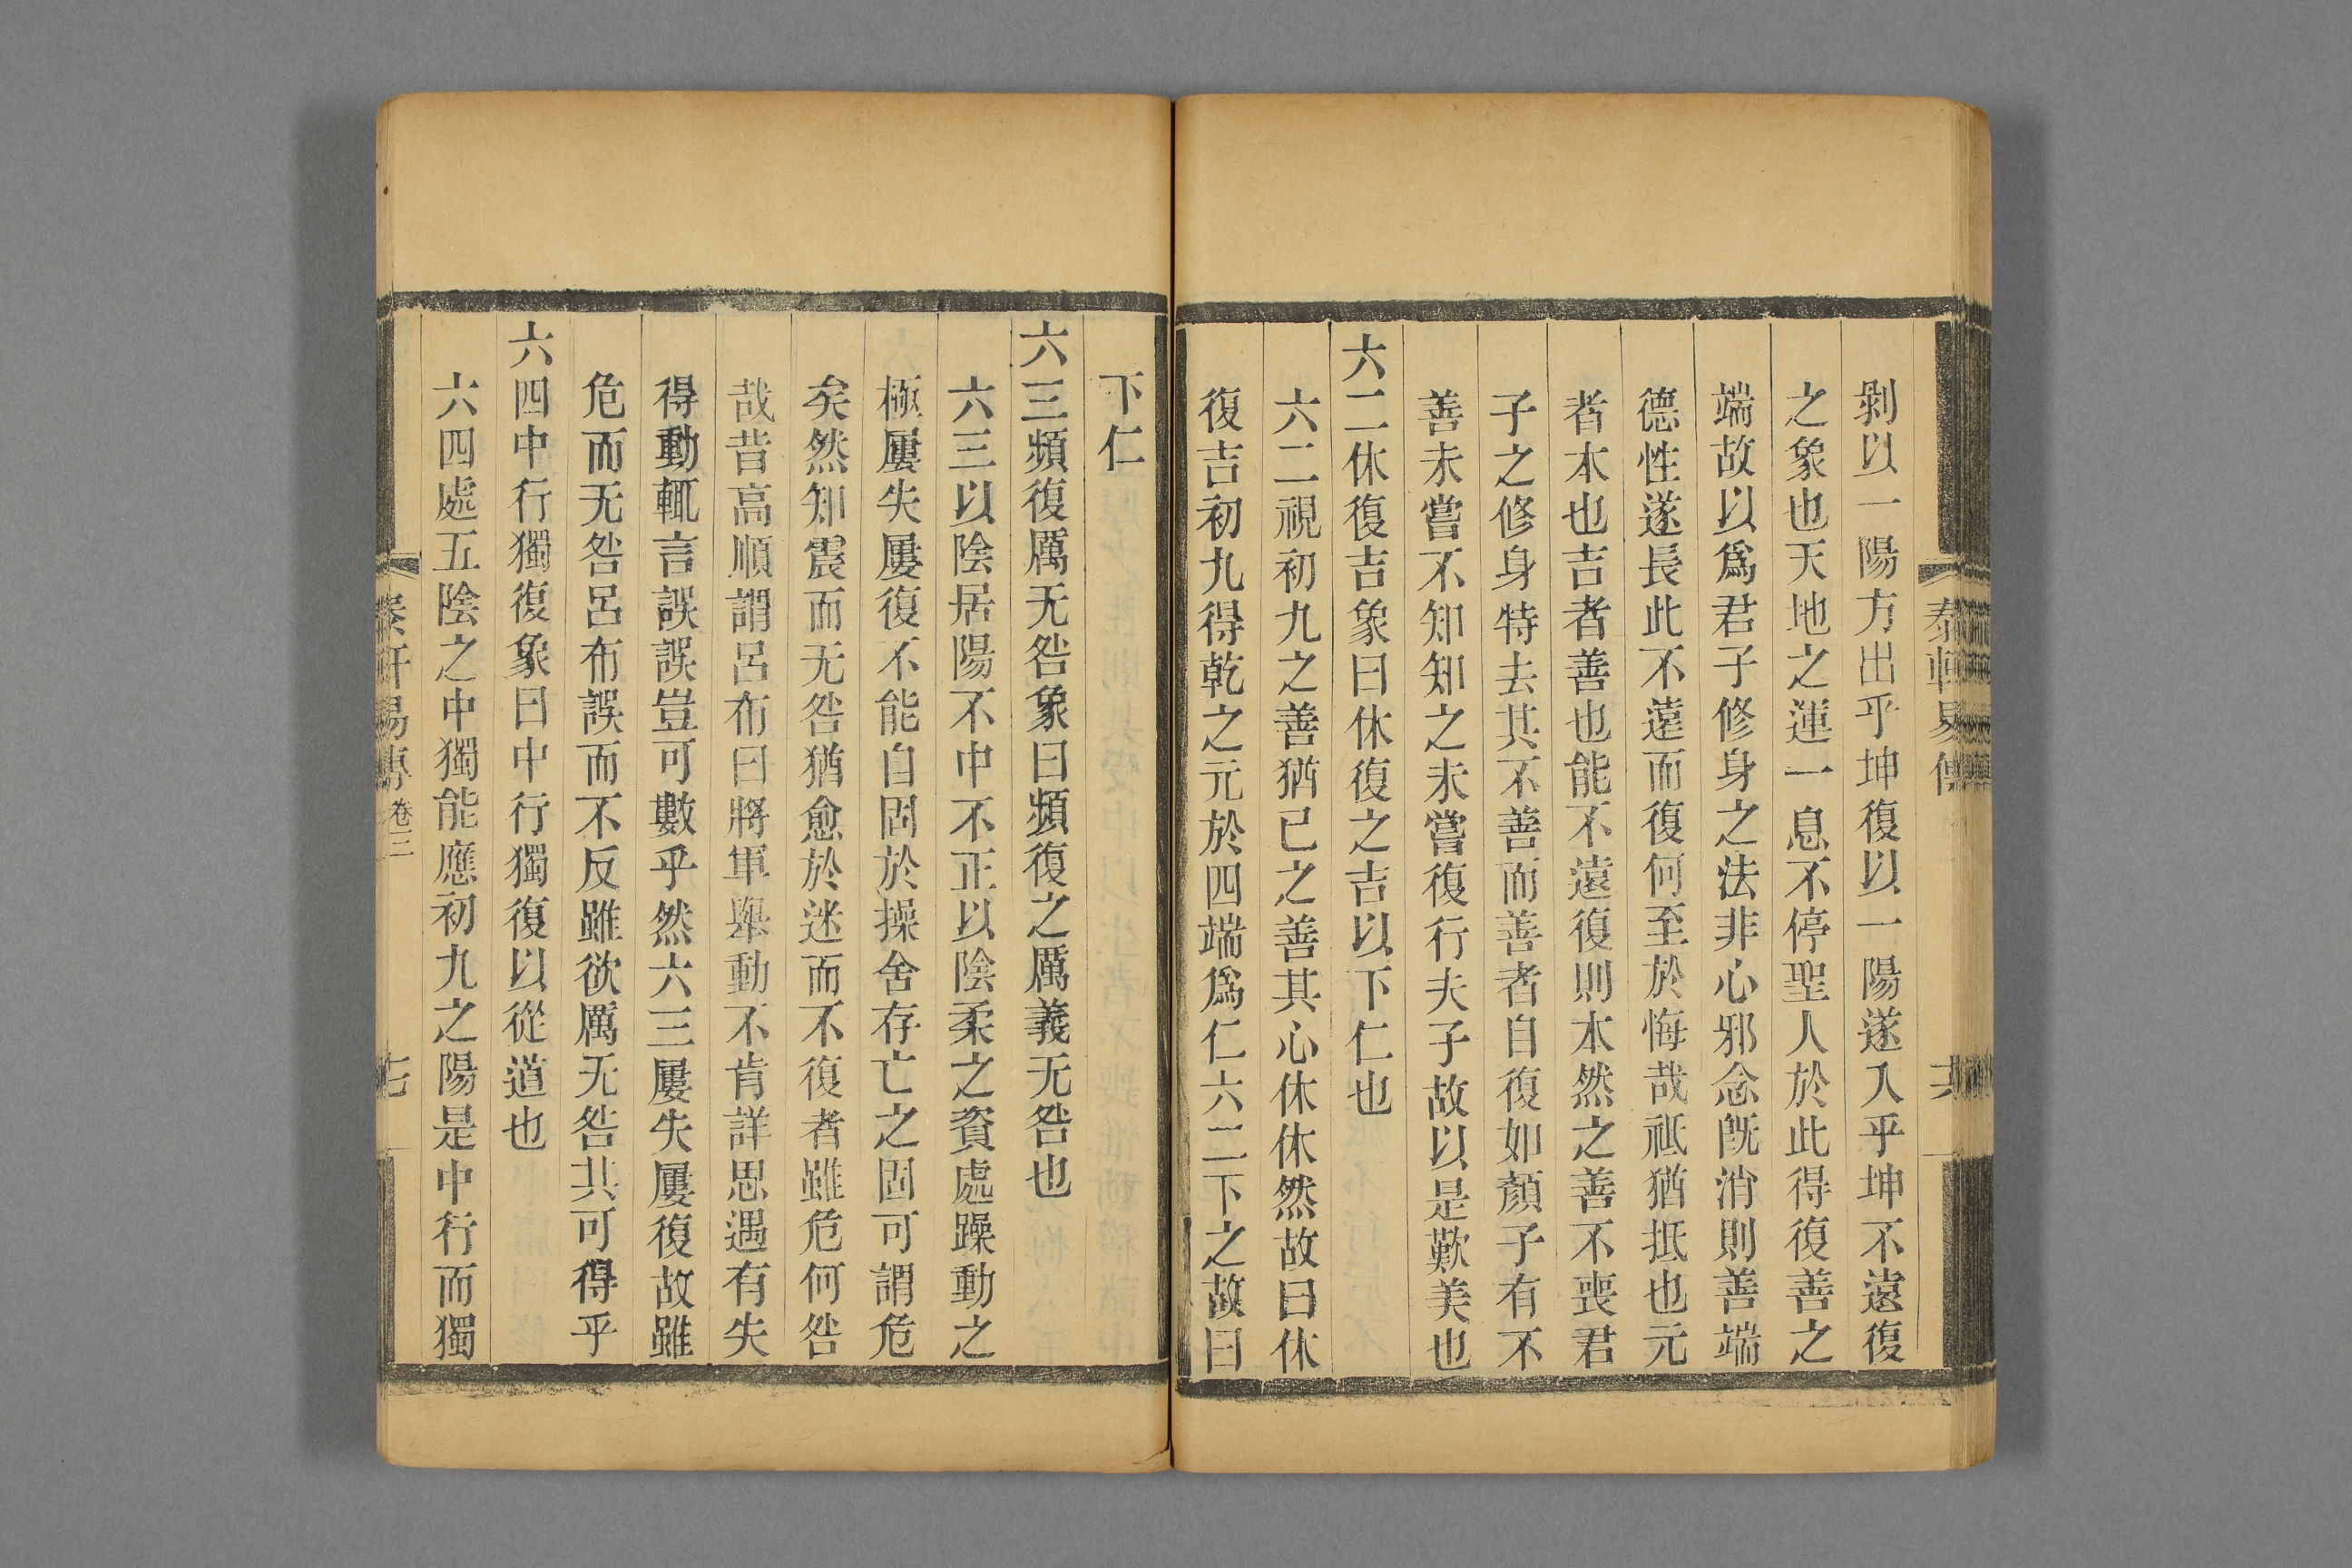 剝以一陽方出乎坤復以一陽遂入乎坤不遠復
之象也天地之運一息不停聖人於此得復善之
端故以爲君子修身之法非心邪念旣消則善端
德性遂長此不遠而復何至於悔哉祗猶抵也元
者本也吉者善也能不遠復則本然之善不喪君
子之修身特去其不善而善者自復如顏子有不
善未嘗不知知之未嘗復行夫子故以是歎美也
六二休復吉象曰休復之吉以下仁也
六二視初九之善猶己之善其心休休然故曰休
復吉初九得乾之元於四端爲仁六二下之故曰
下仁
六三頻復厲无咎象曰頻復之厲義无咎也
六三以陰居陽不中不正以陰柔之資處躁動之
極屢失屢復不能自固於操舍存亡之固可謂危
矣然知震而无咎猶愈於迷而不復者雖危何咎
哉昔高順謂呂布曰將軍舉動不肯詳思遇有失
得動輒言誤誤豈可數乎然六三屢失屢復故雖
危而无咎呂布誤而不反雖欲厲无咎其可得乎
六四中行獨復象曰中行獨復以從道也
六四處五陰之中獨能應初九之陽是中行而獨
泰軒易傳 卷三 十七